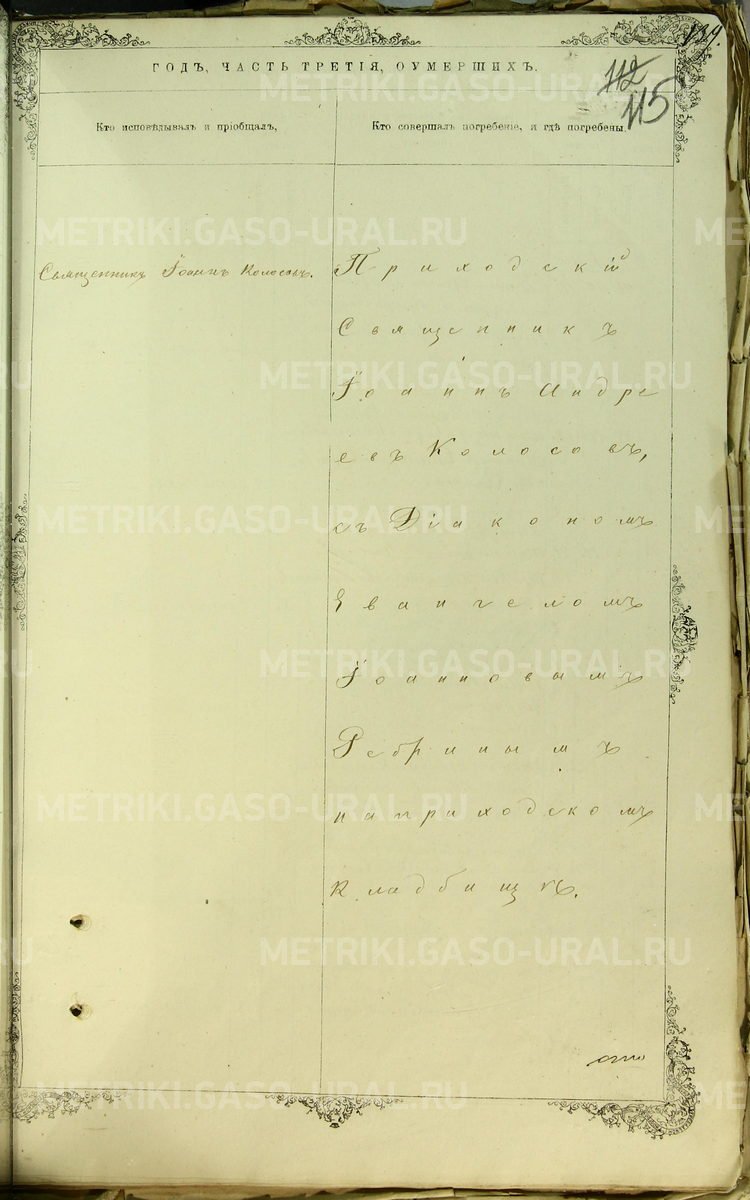 ГОДЪ, ЧАСТЬ ТРЕТІЯ, ОУМЕРШИХЪ.
112
115
Кто исповѣдывалъ и пріобщалъ,
Кто совершалъ погребеніе, и гдѣ погребены.
Священникъ Іоаннъ Колосовъ.
Приходскій
Священникъ
Іоаннъ Андре
евъ Колосовъ,
съ Діакономъ
Евангеломъ
Іоанновымъ
Ребринымъ
на приходскомъ
Кладбищѣ.
METRIKI.GASO-URAL.RU